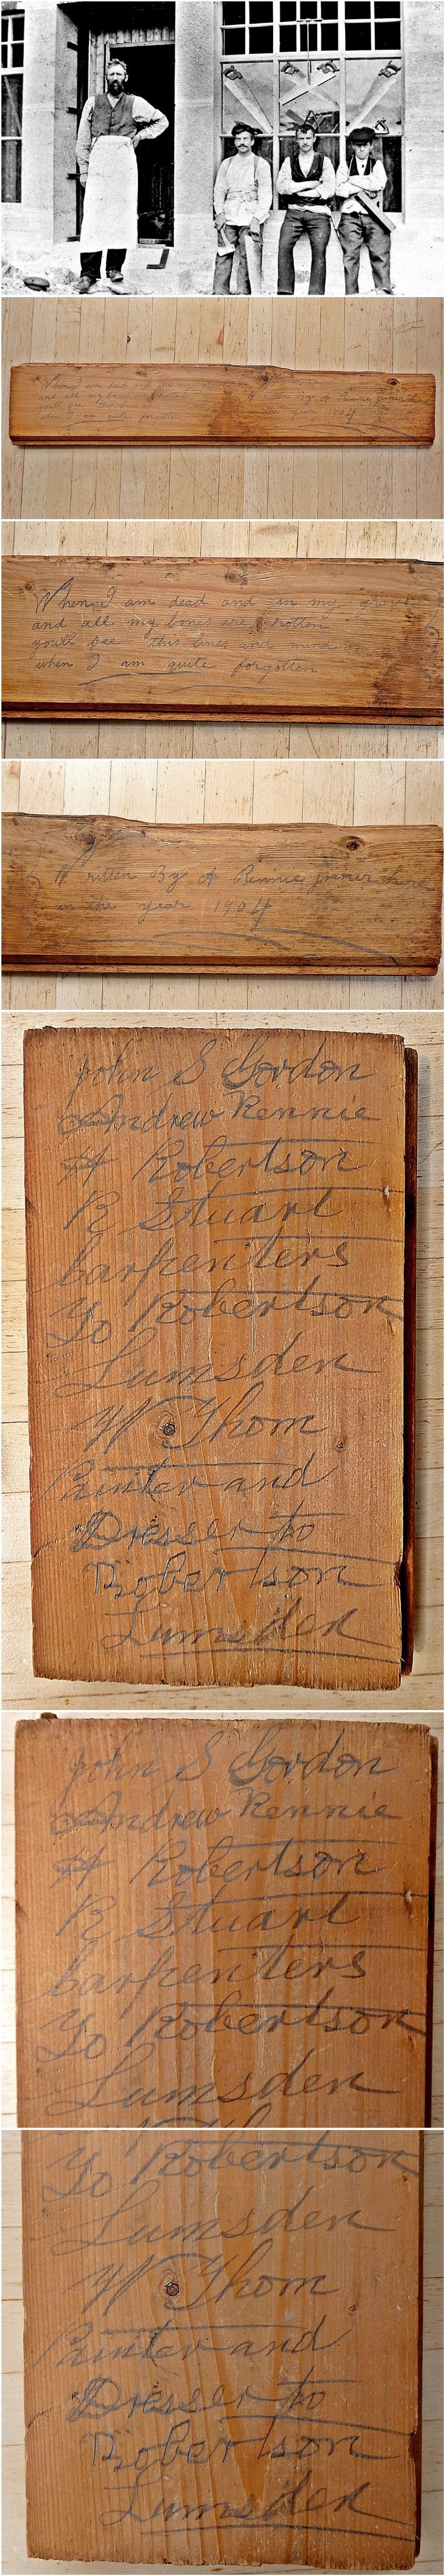 When I am dead and in my
and all my bones are rotten
youll see this lines and mind
when I am quite forgotten
Written By A Rennie joiner here
in the year 1904
When I am dead and in my grave
and all my bones are rotten
youll see this lines and mind
when I am quite forgotten
Written By A Rennie joiner here
in the year 1904
John S Gordon
Andrew Rennie
A Robertson
R Stuart
Carpenters
To Robertson
Lumsden
W Thom
Painter and
Dresser to
Robertson
Lumsden
John S Gordon
Andrew Rennie
A Robertson
R Stuart
Carpenters
To Robertson
Lumsden
To Robertson
Lumsden
W Thom
Painter and
Dresser to
Robertson
Lumsden